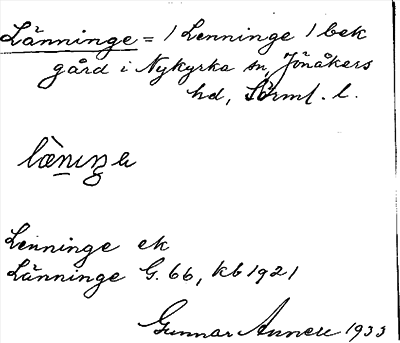 Länninge = / Lenninge / bek
gård i Nykyrka sn, Jönåkers
hd, Sörml. l.
Lenninge ek
Länninge G. 66, kb 1921
Gunnar 1933